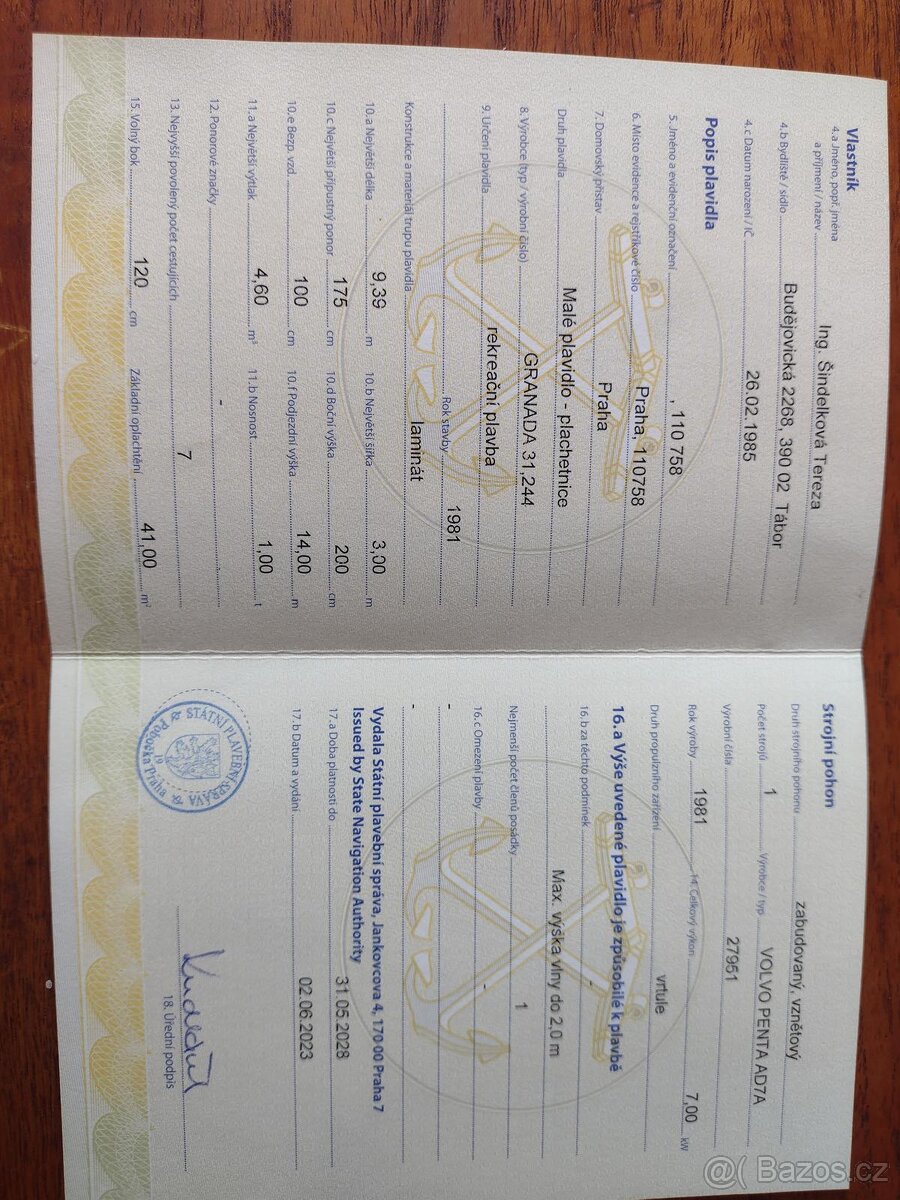 Vlastník
4.a Jméno, popř. jména
a příjmení / název Ing. Šindelková Tereza
4.b Bydliště / sídlo Budějovická 2268, 390 02 Tábor
4.c Datum narození / IČ 26.02.1985
Popis plavidla
5. Jméno a evidenční označení , 110 758
6. Místo evidence a rejstříkové číslo Praha, 110758
7. Domovský přístav Praha
Druh plavidla Malé plavidlo - plachetnice
8. Výrobce (typ / výrobní číslo) GRANADA 31,244
9. Určení plavidla rekreační plavba
Rok stavby 1981
Konstrukce a materiál trupu plavidla laminát
10.a Největší délka 9,39 m 10.b Největší šířka 3,00 m
10.c Největší přípustný ponor 175 cm 10.d Boční výška 200 cm
10.e Bezp. vzd. 100 cm 10.f Podjezdní výška 14,00 m
11.a Největší výtlak 4,60 m³ 11.b Nosnost 1,00 t
12. Ponorové značky -
13. Nejvyšší povolený počet cestujících 7
15. Volný bok 120 cm Základní oplachtění 41,00 m²
Strojní pohon
Druh strojního pohonu zabudovaný, vznětový
Počet strojů 1 Výrobce / typ VOLVO PENTA AD7A
Výrobní čísla 27951
Rok výroby 1981 14. Celkový výkon 7,00 kW
Druh propulzního zařízení vrtule
16.a Výše uvedené plavidlo je způsobilé k plavbě
-
16.b za těchto podmínek
Max. výška vlny do 2,0 m
Nejmenší počet členů posádky 1
16.c Omezení plavby -
-
-
Vydala Státní plavební správa, Jankovcova 4, 170 00 Praha 7
Issued by State Navigation Authority
17.a Doba platnosti do 31.05.2028
17.b Datum a vydání 02.06.2023
STÁTNÍ PLAVEBNÍ SPRÁVA
Pobočka Praha
19
18. Úřední podpis
@( Bazos.cz